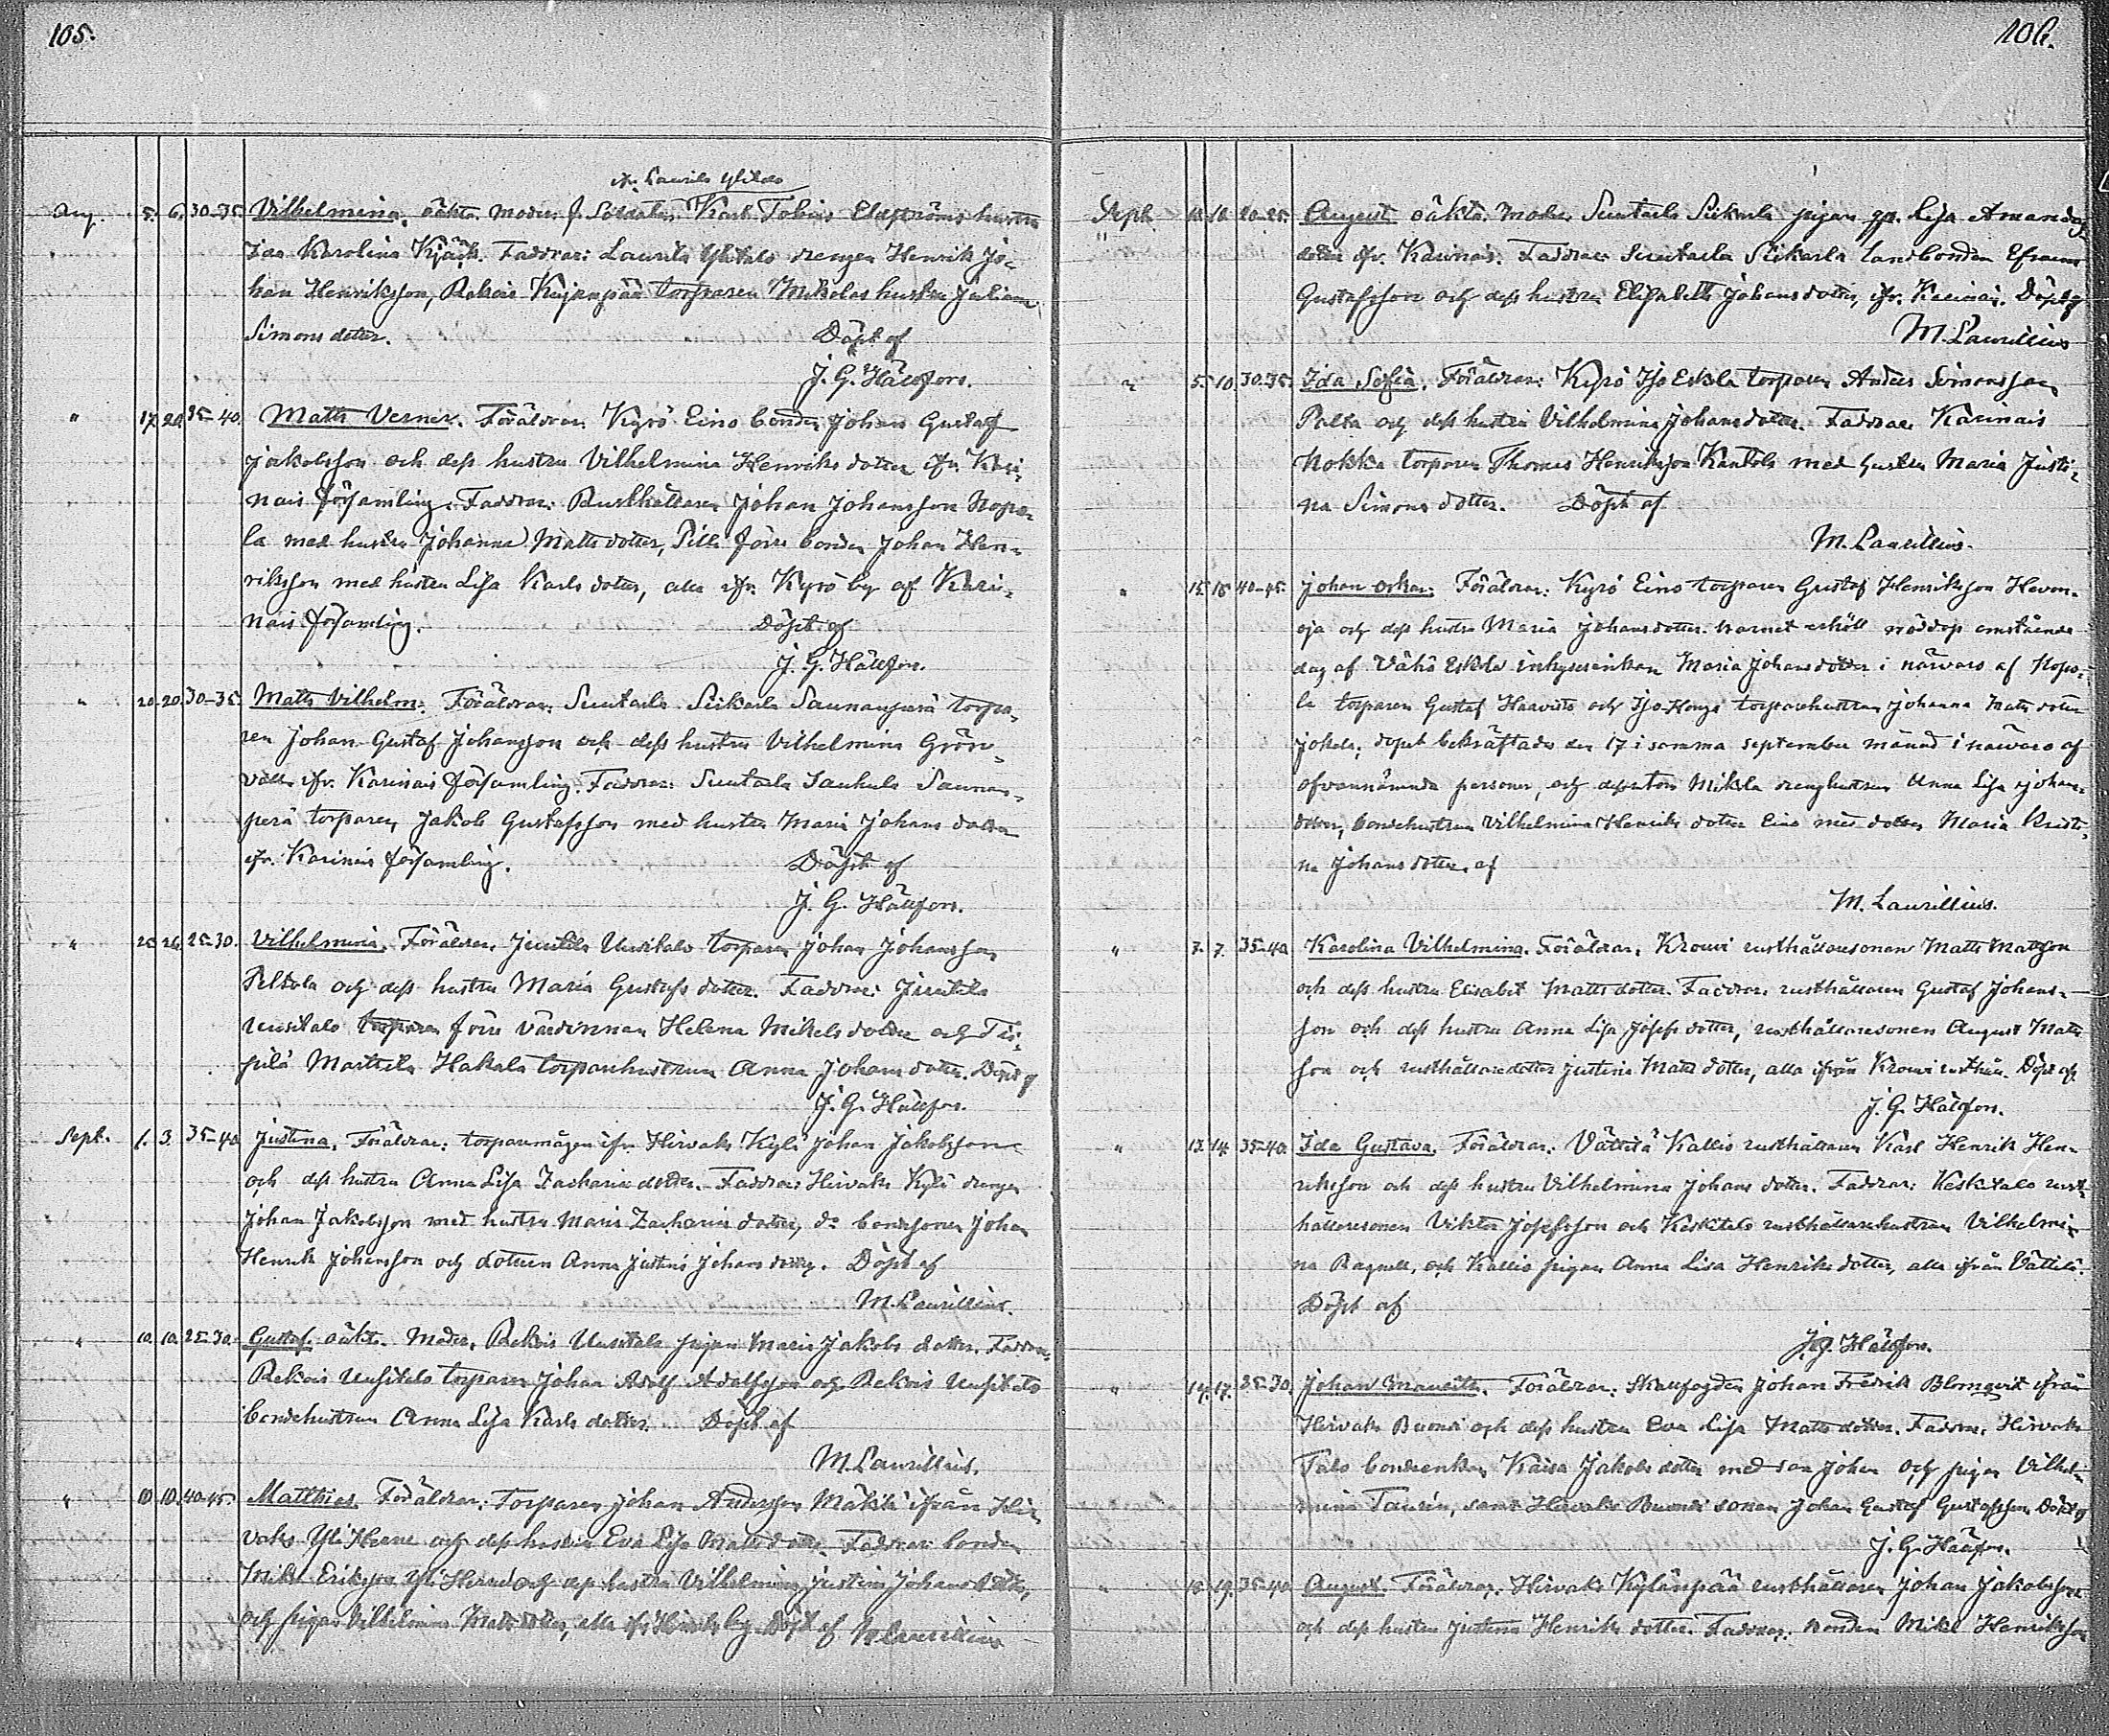 105.
ifr. Laurila Ylitalo
Aug. 5. 6. 30-35. Vilhelmina, oäkta. Moder: f. Soldaten Karl Tobias Ekströms hustru
Ida Karolina Kjäck. Faddrar: Laurila Ylitalo drengen Henrik Jo-
han Henriksson, Rekois Kujanpää torparen Mikolas hustru Juliana
Simons dotter. Döpt af
J. G. Hällfors.
" 17. 20. 35-40. Matts Verner. Föräldrar: Kyrö Eino bonden Johan Gustaf
Jakobsson och dess hustru Vilhelmina Henriks dotter ifr. Kari-
nais församling. Faddrar: Rusthållaren Johan Johansson Nopo-
la med hustru Johanna Matts dotter, Pilli förre bonden Johan Hen-
riksson med hustru Lisa Karls dotter, alla ifr. Kyrö by af Kari-
nais församling. Döpt af
J. G. Hällfors.
" 20. 20. 30-35. Matts Vilhelm. Föräldrar: Suutarla Siikarla Saunanperä torpa-
ren Johan Gustaf Johansson och dess hustru Vilhelmina Grön-
vall, ifr. Karinais församling. Faddrar: Suutarla Saukula Saunan-
perä torparen Jakob Gustafsson med hustru Maria Johans dotter
ifr. Karinais församling. Döpt af
J. G. Hällfors.
" 25. 26. 25-30. Vilhelmina. Föräldrar: Juutila Uusitalo torparen Johan Johansson
Peltola och dess hustru Maria Gustafs dotter. Faddrar: Juutila
Uusitalo torparen förre värdinnan Helena Mikels dotter och Tii-
pilä Marttila Hakala torparehustrun Anna Johans dotter. Döpt af
J. G. Hällfors.
Sept. 1. 3. 35-40. Justina. Föräldrar: torparemågen ifr. Hirvaks Kylä Johan Jakobsson
och dess hustru Anna Lisa Zacharia dotter. Faddrar: Hirvaks Kylä drengen
Johan Jakobsson med hustru Maria Zacharia dotter, do bondesonen Johan
Henrik Johansson och dottern Anna Justina Johans dotter. Döpt af
M. Laurellius.
" 10. 10. 25-30. Gustaf, oäkta. Moder: Rekois Uusitalo pigan Maria Jakobs dotter. Faddrar:
Rekois Uusitalo torparen Johan Adolf Adolfsson och Rekois Uusitalo
bondehustrun Anna Lisa Karls dotter. Döpt af
M. Laurellius.
" 10. 10. 40-45. Matthias. Föräldrar: Torparen Johan Andersson Mäkilä ifrån Hir-
vaks Yli Heenė och dess hustru Eva Lisa Matts dotter. Faddrar: bonden
Mikel Eriksson Yli och dess hustru Vilhelmina Justina Johans dotter,
och pigan Vilhelmina Matts dotter, alla ifr. Hirvaks by. Döpt af M. Laurellius
106.
Sept. 10. 10. 20-25. August oäkta. Moder: Suutarla Siikarla pigan Lisa Amanda
dotter ifr. Karinais. Faddrar: Suutarla Siikarla landbonden Efraim
Gustafsson och dess hustru Elisabeth Johans dotter, ifr. Karinais. Döpt af
M. Laurellius
" 5. 10. 30-35. Ida Sofia. Föräldrar: Kyrö Iso Eskla torparen Anders Simonsson
Palta och dess hustru Vilhelmina Johans dotter. Faddrar: Karinais
Nokka torparen Thomas Henriksson Kantola med hustru Maria Justi-
na Simons dotter. Döpt af
M. Laurellius.
" 15. 15. 40-45. Johan Oskar. Föräldrar: Kyrö Eino torparen Gustaf Henriksson Hevon-
oja och dess hustru Maria Johansdotter. Barnet erhöll nöddop omstående
dag af Vähä Eskla inhysesenkan Maria Johans dotter i närvaro af Nopo-
la torparen Gustaf Haavisto och Iso torparehustrun Johanna Matts dotter
Jokela; dopet bekräftades den 17 i samma september månad i närvaro af
ofvannämnda personer, och dessutom Mikola drenghustrun Anna Lisa Johans-
dotter, bondehustrun Vilhelmina Henriks dotter Eino med dotter Maria Kristi-
na Johans dotter, af
M. Laurellius.
" 7. 7. 35-40. Karolina Vilhelmina. Föräldrar: Krouvi rusthållaresonen Matts Mattsson
och dess hustru Elisabet Matts dotter. Faddrar: rusthållaren Gustaf Johans-
son och dess hustru Anna Lisa Josefs dotter, rusthållaresonen August Matts-
son och rusthållaredotter Justina Matts dotter, alla ifrån Krouvi rusthåll. Döpt af
J. G. Hällfors.
" 13. 14. 35-40. Ida Gustava. Föräldrar: Vättilä Kallio rusthållaren Karl Henrik Hen-
riksson och dess hustru Vilhelmina Johans dotter. Faddrar: Keskitalo rust-
hållaresonen Viktor Josefsson och Keskitalo rusthållarehustrun Vilhelmi-
na Ragnell, och Kallio pigan Anna Lisa Henriks dotter, alla ifrån Vättilä.
Döpt af
J. G. Hällfors.
" 14. 17. 25-30. Johan Mauritz. Föräldrar: Skallfogden Johan Fredrik Blomqvist ifrån
Hirvaks Buoneri och dess hustru Eva Lisa Matts dotter. Faddrar: Hirvaks
Talo bondeenkan Kaisa Jakobs dotter med son Johan och pigan Vilhel-
mina Taurén, samt Hirvaks sonen Johan Gustaf Gustafsson. Döpt af
J. G. Hällfors.
" 18. 19. 35-40. August. Föräldrar: Hirvaks Kylänpää rusthållaren Johan Jakobsson
och dess hustru Justina Henriks dotter. Faddrar: bonden Mikel Henriksson